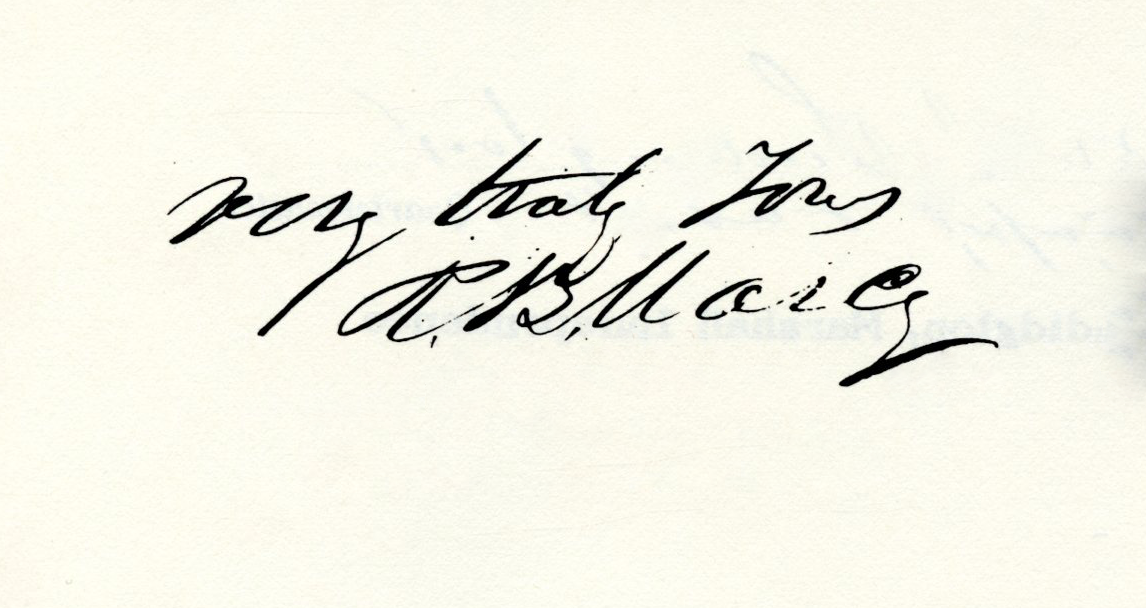 very truly Yours
R. B. Marcy